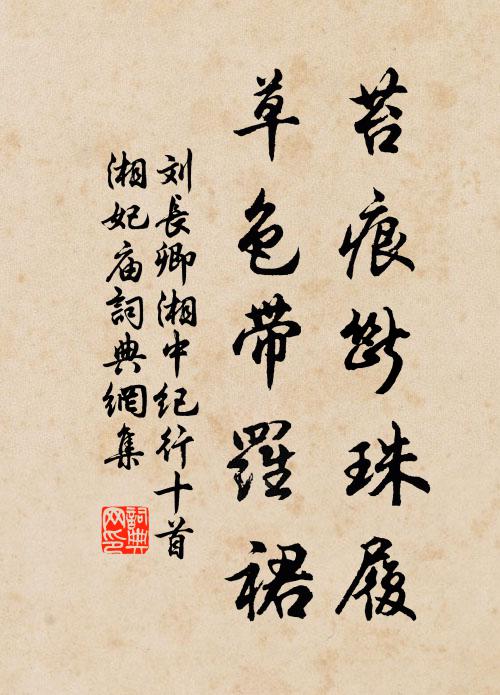 苔痕断珠履
草色带羅裙
刘長卿湘中纪行十首
湘妃庙詞典網集
詞典网印